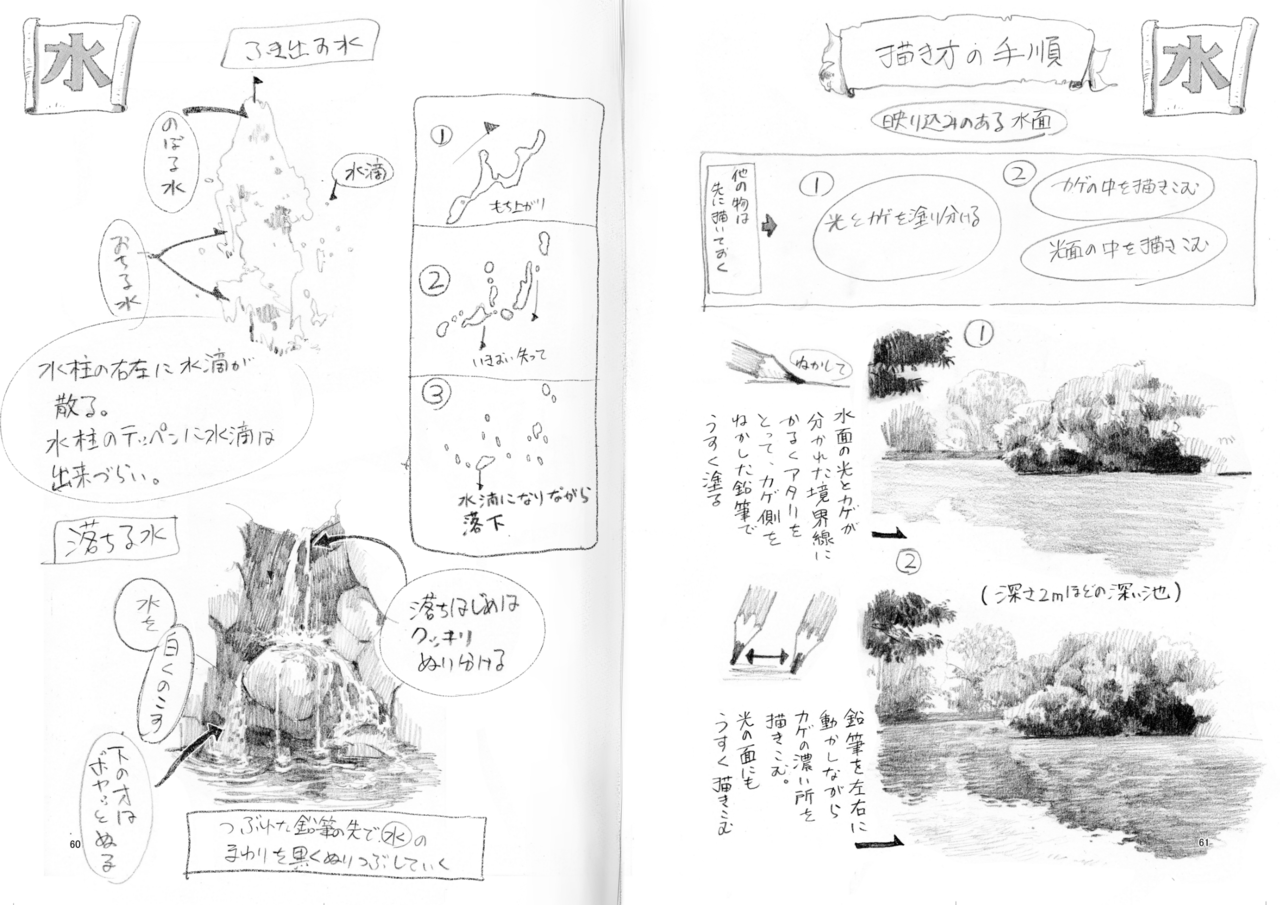 水
ふき出す水
のぼる水
水滴
おちる水
水柱の右左に水滴が
散る。
水柱のテッペンに水滴は
出来づらい。
①
もち上がり
②
いきおい失って
③
水滴になりながら
落下
落ちる水
水を
白くのこす
落ちはじめは
クッキリ
ぬり分ける
下の方は
ボヤッとぬる
つぶれた鉛筆の先で水の
まわりを黒くぬりつぶしていく
60
描き方の手順
水
映り込みのある水面
他の物は
先に描いておく
①
光とカゲを塗り分ける
②
カゲの中を描きこむ
光面の中を描きこむ
ねかして
①
水面の光とカゲが
分かれた境界線に
かるくアタリを
とって、カゲ側を
ねかした鉛筆で
うすく塗る
②
(深さ2mほどの深い池)
鉛筆を左右に
動かしながら
カゲの濃い所を
描きこむ。
光の面にも
うすく描きこむ
61